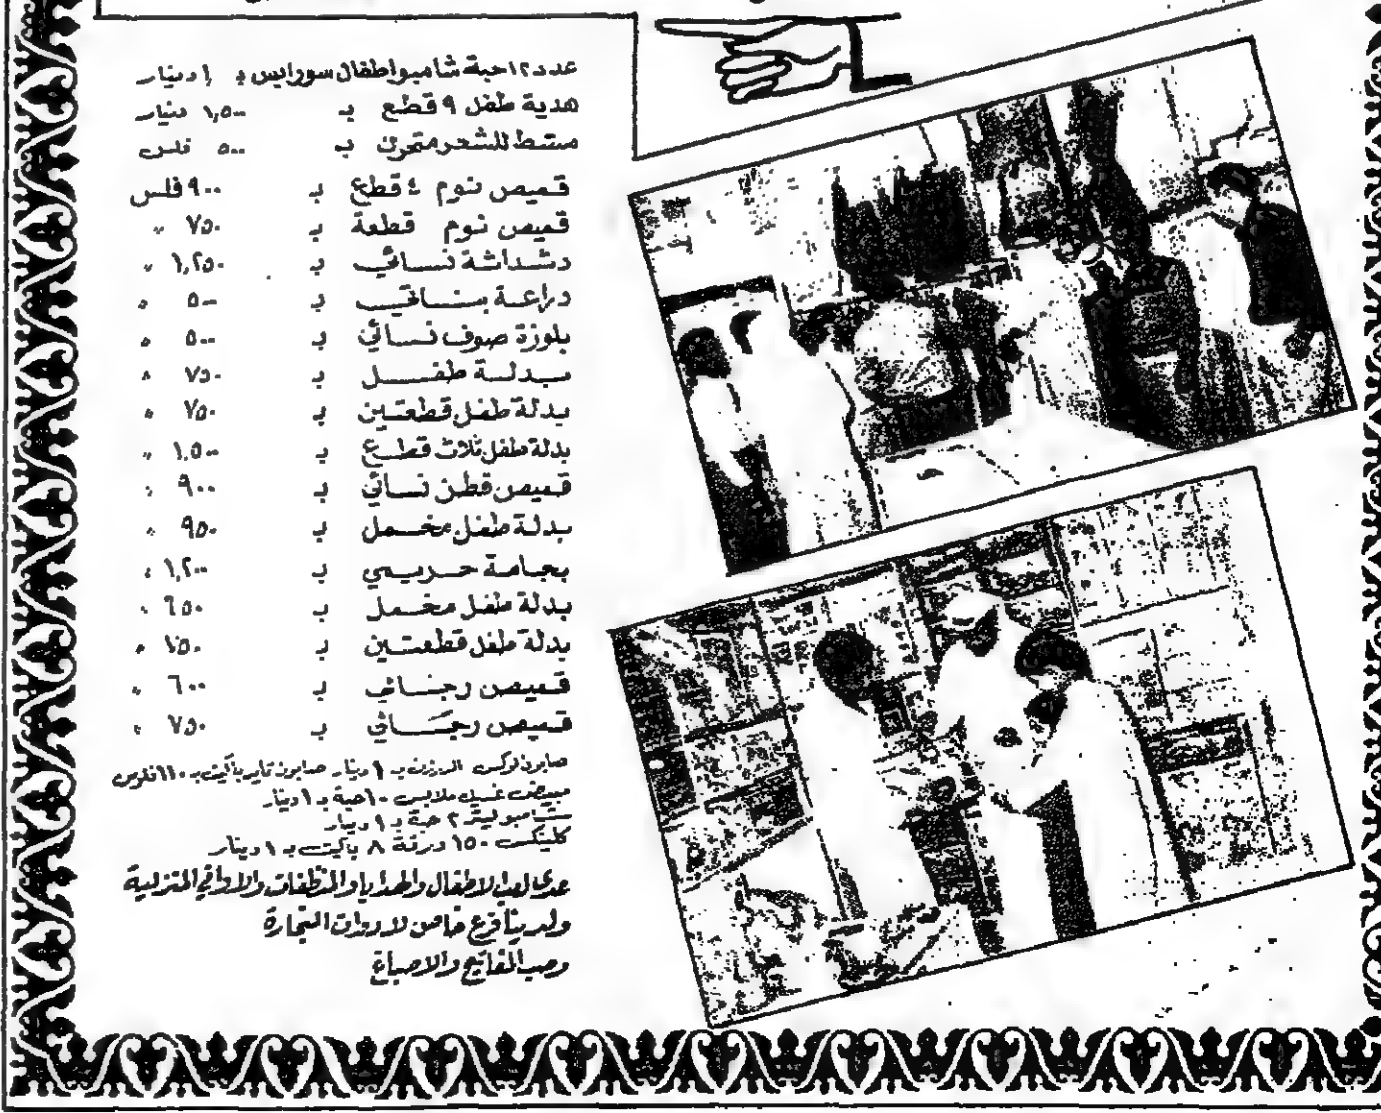 عدد ١٢ حبة شامبو اطفال سورايس بـ ١ دينار
هدية طفل ٩ قطع بـ ١,٥٠٠ دينار
مشط للشعر متحرك بـ ٥٠٠ فلس
قميص نوم ٤ قطع بـ ٩٠٠ فلس
قميص نوم قطعة بـ ٧٥٠ "
دشداشة نسائي بـ ١,٢٥٠ "
دراعة بناتي بـ ٥٠٠ "
بلوزة صوف نسائي بـ ٥٠٠ "
بدلة طفل بـ ٧٥٠ "
بدلة طفل قطعتين بـ ٧٥٠ "
بدلة طفل ثلاث قطع بـ ١,٥٠٠ "
قميص قطن نسائي بـ ٩٠٠ "
بدلة طفل مخمل بـ ٩٥٠ "
بجامة حريمي بـ ١,٢٠٠ "
بدلة طفل مخمل بـ ٦٥٠ "
بدلة طفل قطعتين بـ "
قميص رجالي بـ ٦٠٠ "
قميص رجالي بـ ٧٥٠ "
صابون لوكس الدرزن بـ ١ دينار صابون تايد باكيت بـ فلس
مبيض غسيل ملابس ١٠ حبة بـ ١ دينار
شامبو ٢ حبة بـ ١ دينار
كلينكس ١٥٠ ورقة ٨ باكيت بـ ١ دينار
عدى لعب الاطفال والهدايا والمنظفات والاواني المنزلية
ولدينا فرع خاص لادوات النجارة
وصب المفاتيح والاصباغ